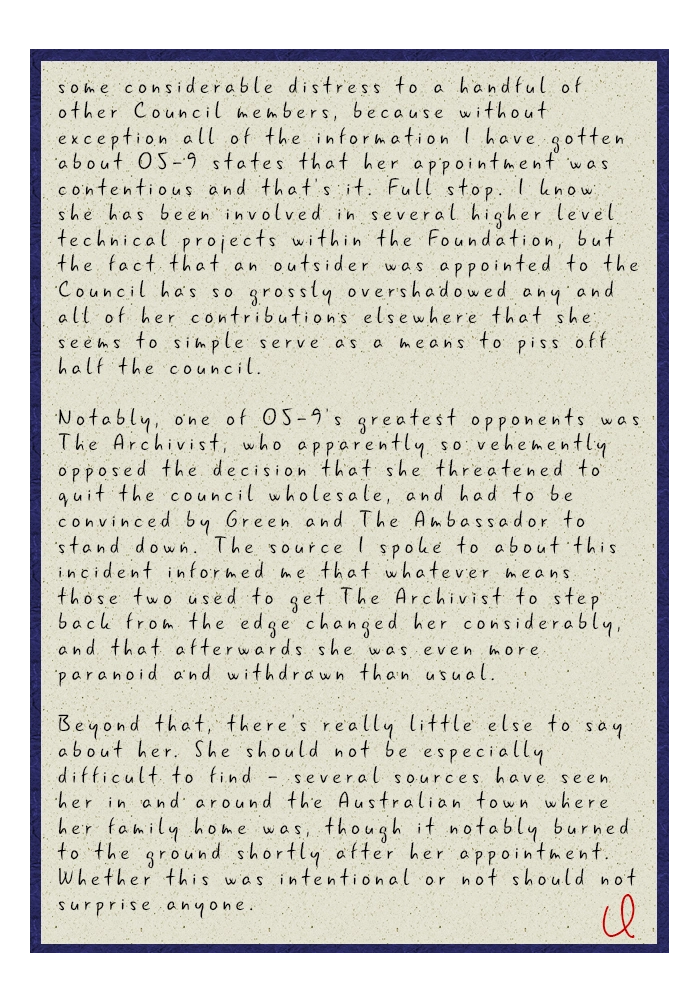 some considerable distress to a handful of
other Council members, because without
exception all of the information I have gotten
about O5-9 states that her appointment was
contentious and that's it. Full stop. I know
she has been involved in several higher level
technical projects within the Foundation, but
the fact that an outsider was appointed to the
Council has so grossly overshadowed any and
all of her contributions elsewhere that she
seems to simple serve as a means to piss off
half the council.

Notably, one of O5-9's greatest opponents was
The Archivist, who apparently so vehemently
opposed the decision that she threatened to
quit the council wholesale, and had to be
convinced by Green and The Ambassador to
stand down. The source I spoke to about this
incident informed me that whatever means
those two used to get The Archivist to step
back from the edge changed her considerably,
and that afterwards she was even more
paranoid and withdrawn than usual.

Beyond that, there's really little else to say
about her. She should not be especially
difficult to find - several sources have seen
her in and around the Australian town where
her family home was, though it notably burned
to the ground shortly after her appointment.
Whether this was intentional or not should not
surprise anyone.